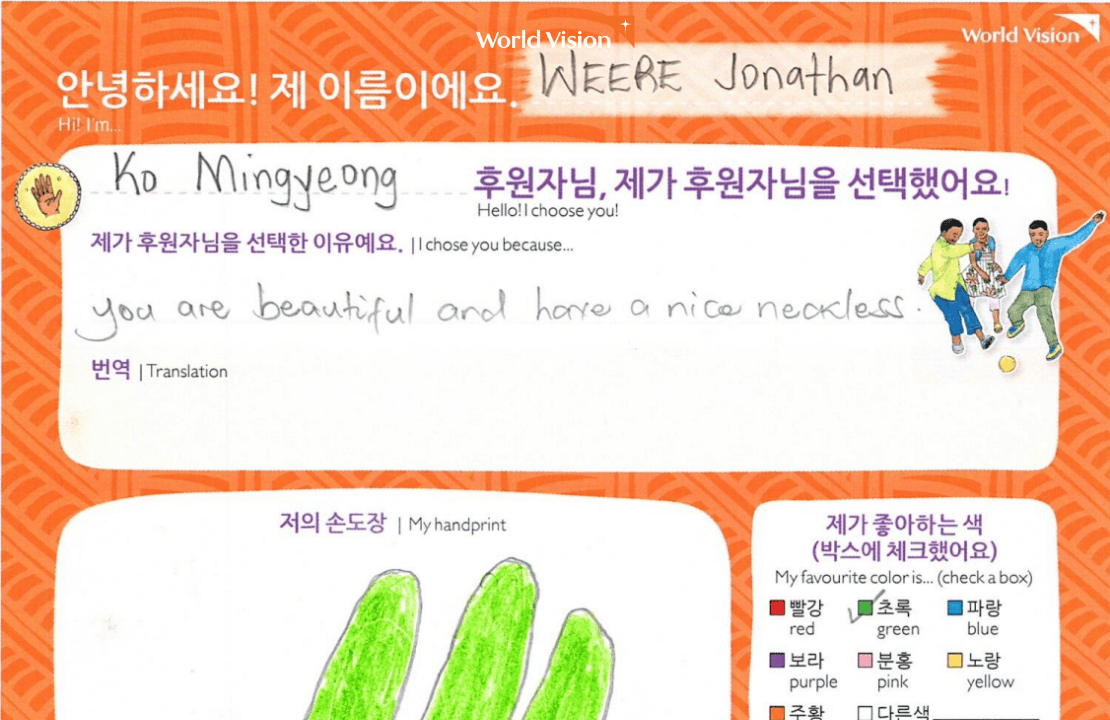 World Vision
World Vision
안녕하세요! 제 이름이에요. WEERE Jonathan
Hi! I'm...
Ko Mingyeong 후원자님, 제가 후원자님을 선택했어요!
Hello! I choose you!
제가 후원자님을 선택한 이유예요. | I chose you because...
you are beautiful and have a nice neckless.
번역 | Translation
저의 손도장 | My handprint
제가 좋아하는 색
(박스에 체크했어요)
My favourite color is... (check a box)
빨강 초록 파랑
red green blue
보라 분홍 노랑
purple pink yellow
주황 다른색